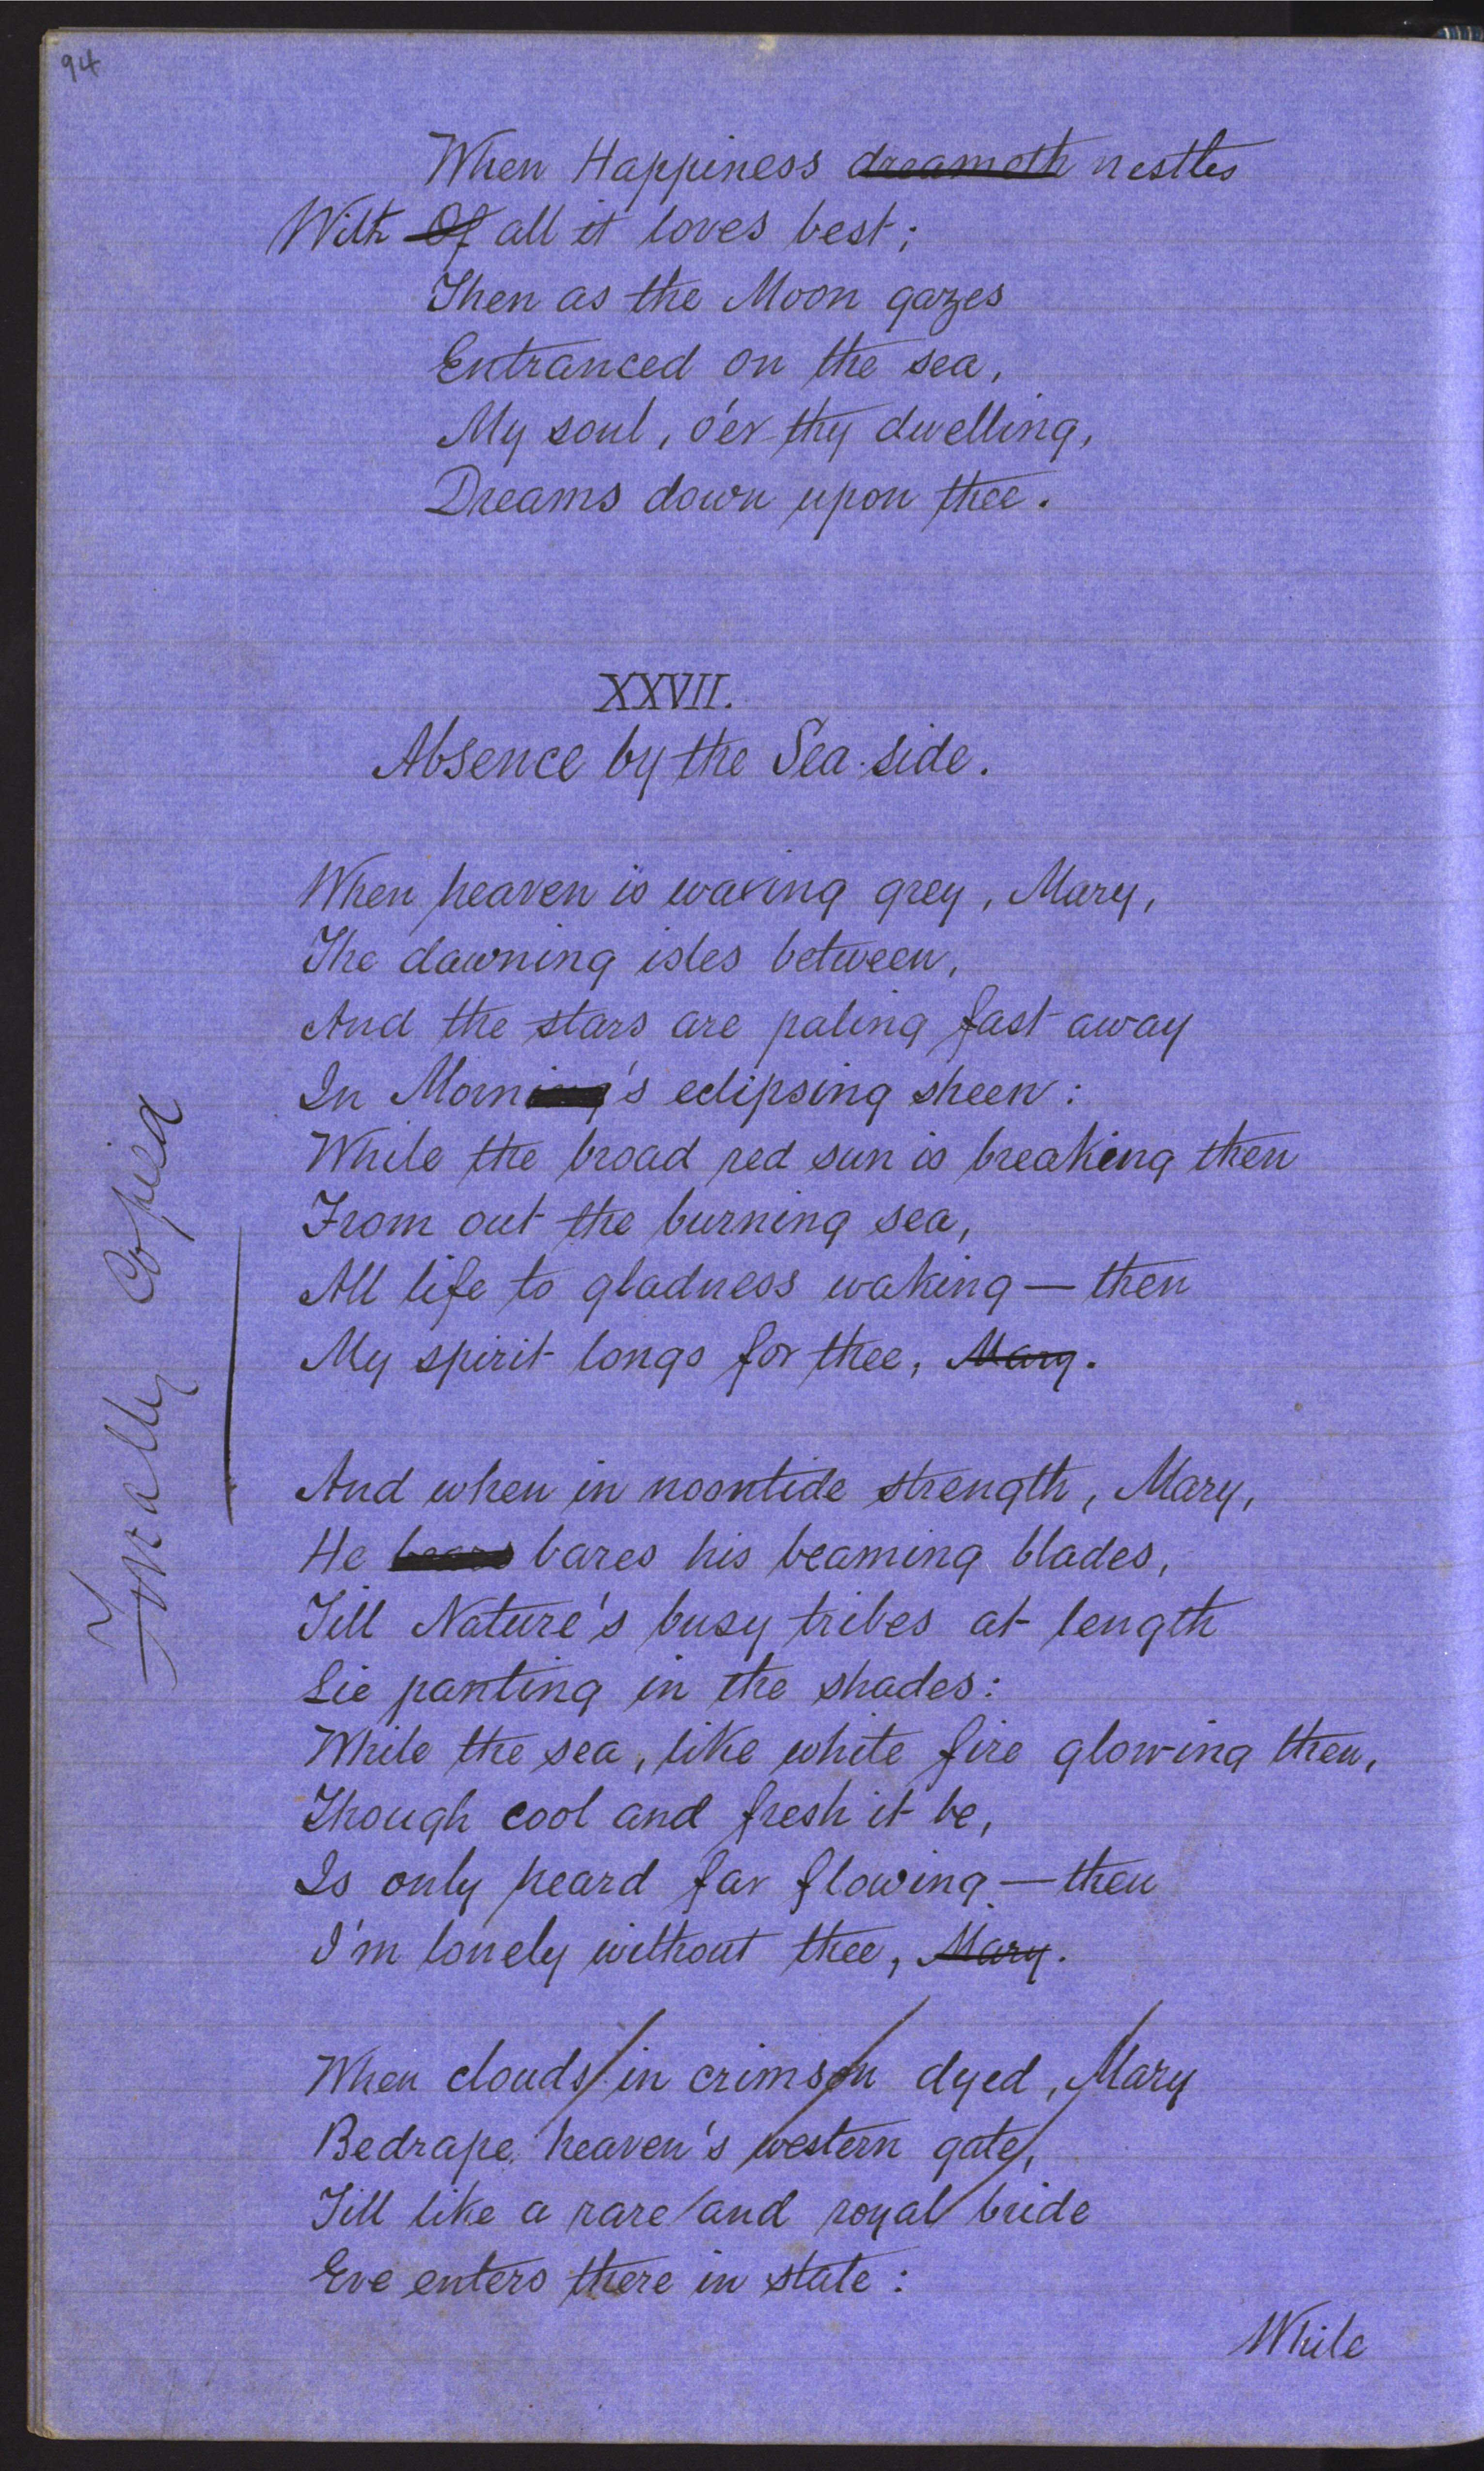 94
When Happiness dreameth nestles
With Of all it loves best;
Then as the Moon gazes
Entranced on the sea,
My soul, o'er thy dwelling,
Dreams down upon thee.
XXVII.
Absence by the Sea-side.
When heaven is waxing grey, Mary,
The dawning isles between,
And the stars are paling fast away
In Morning's eclipsing sheen:
While the broad red sun is breaking then
From out the burning sea,
All life to gladness waking — then
My spirit longs for thee, Mary.
Finally Copied
And when in noontide strength, Mary,
He bears bares his beaming blades,
Till Nature's busy tribes at length
Lie panting in the shades:
While the sea, like white fire glowing then,
Though cool and fresh it be,
Is only heard far flowing — then
I'm lonely without thee, Mary.
When clouds in crimson dyed, Mary
Bedrape heaven's western gate,
Till like a rare and royal bride
Eve enters there in state:
While